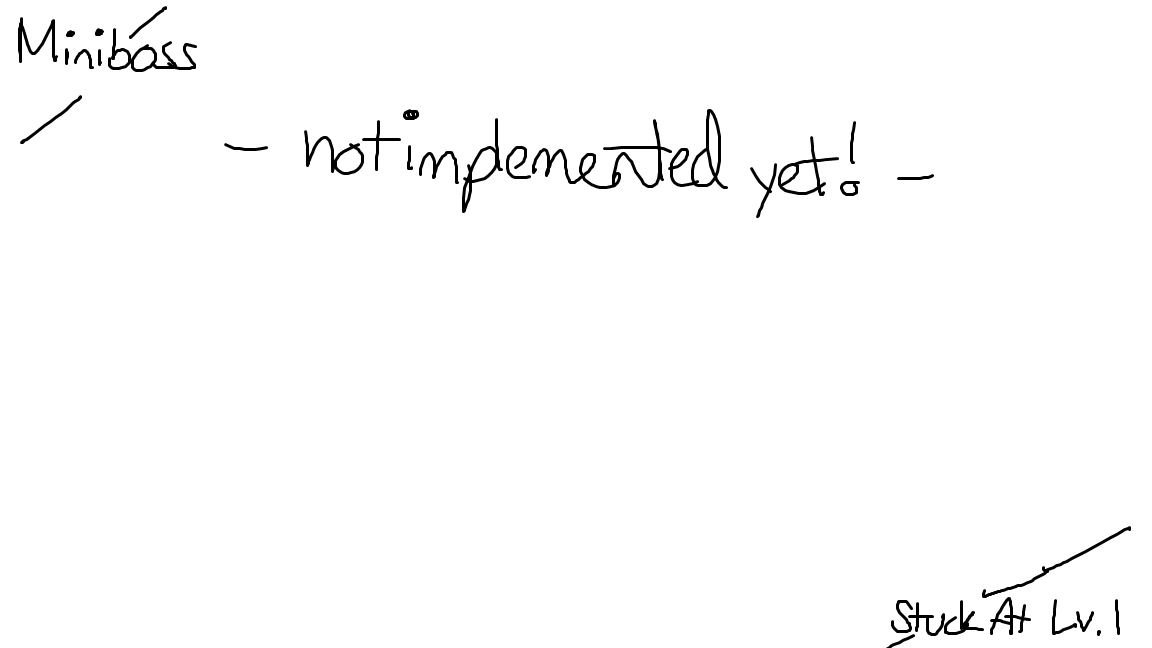 Miniboss
- not implemented yet! -
Stuck At Lv. 1